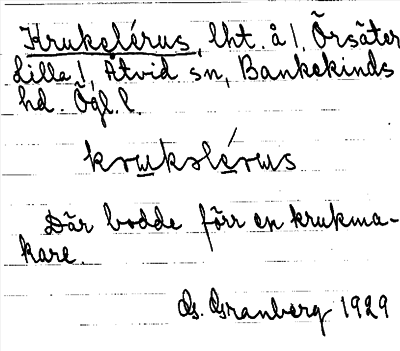 Krukelérus, lht. å l. Örsäter
Lilla l, Åtvid sn, Bankekinds
hd. Ögl. l.
krukslérus
Där bodde förr en krukma-
kare.
G. Granberg 1929